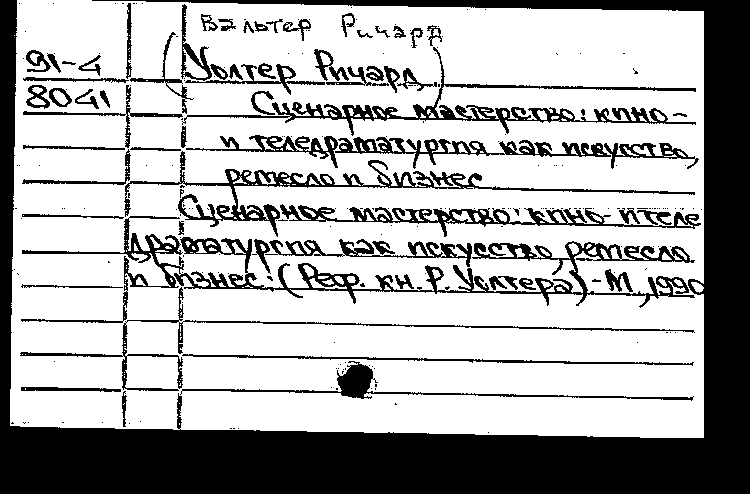 Вальтер Ричард
91-4 (Уолтер Ричард)
8041 Сценарное мастерство: кино-
и теледраматургия как искусство,
ремесло и бизнес
Сценарное мастерство: кино- и теле
драматургия как искусство, ремесло
и бизнес: (Реф. кн. Р. Уолтера).-М., 1990